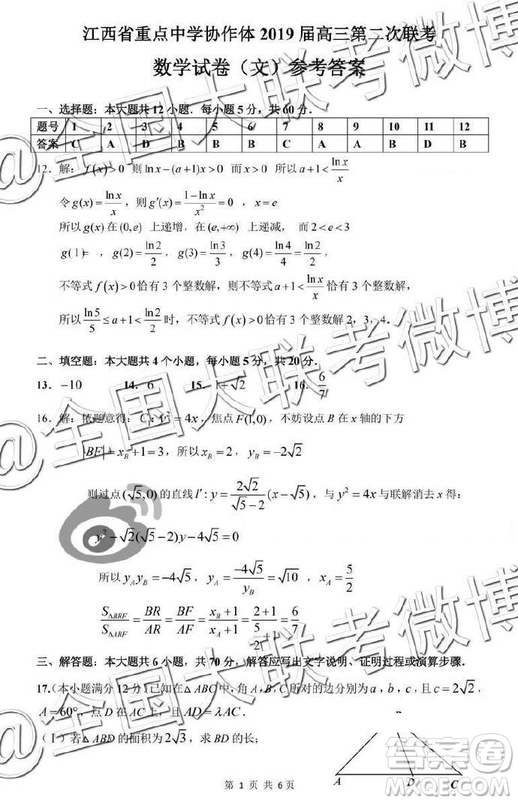 江西省重点中学协作体 2019 届高三第二次联考
数学试卷（文）参考答案
一、选择题：本大题共 12 小题．每小题 5 分，共 60 分．
题号 1 2 3 4 5 6 7 8 9 10 11 12
答案 C A D B C A A B D B
12．解：f(x)>0 则 ln x-(a+1)x>0 而 x>0 所以 a+1<ln x/x
令 g(x)=ln x/x，则 g′(x)=(1-ln x)/x²=0 ，x=e
所以 g(x) 在 (0,e) 上递增，在 (e,+∞) 上递减， 而 2<e<3
g(1)= ，g(2)=ln2/2，g(3)=ln3/3，g(4)=ln4/4=ln2/2
不等式 f(x)>0 恰有 3 个整数解，则 a+1<ln x/x 恰有 3 个整数解，
所以 ln5/5≤a+1<ln2/2 时，不等式 f(x)>0 恰有 3 个整数解 2，3，4．
二、填空题：本大题共 4 个小题，每小题 5 分，共 20 分．
13．-10 14．6 15．1+√2 16．6/7
16．解：依题意得：C：y²=4x，焦点 F(1,0)，不妨设点 B 在 x 轴的下方
|BF|=x_B+1=3，所以 x_B=2，y_B=-2√2
则过点 (√5,0) 的直线 l′:y=2√2/(√5-2)(x-√5)，与 y²=4x 与联解消去 x 得：
y²-√2(√5-2)y-4√5=0
所以 y_A y_B=-4√5，y_A=-4√5/y_B=√10 ，x_A=5/2
S△BRF/S△ARF=BR/AR=BF/AF=(x_B+1)/(x_A+1)=(2+1)/(5/2+1)=6/7
三、解答题：本大题共 6 小题，共 70 分，解答应写出文字说明、证明过程或演算步骤．
17.（本小题满分 12 分）已知在△ABC 中，角 A，B，C 的对边分别为 a，b，c，且 c=2√2，
A=60°．点 D 在 AC 上，且 AD=λAC．
（1）若△ABC 的面积为 2√3，求 BD 的长；
A D C
第 1 页 共 6 页
@全国大联考微博
@全国大联考微博
答案圈
MXQE.COM